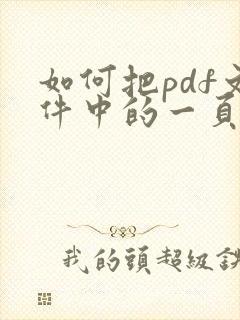 如何把pdf文
件中的一页
我的頭超級